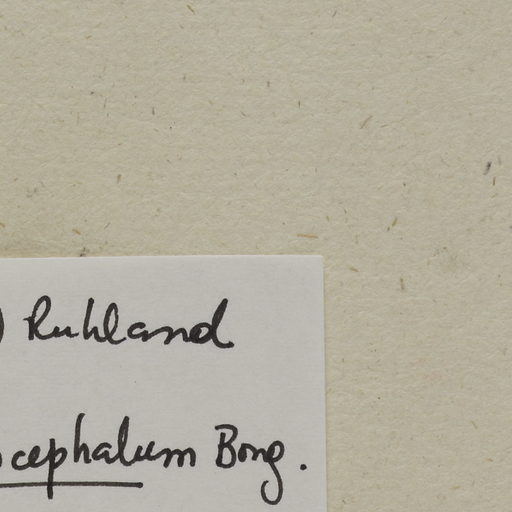 ) Ruhland
ocephalum Bong.